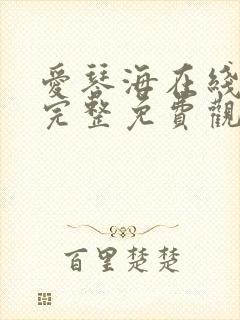 愛琴海在綫
完整免費觀
百里楚楚